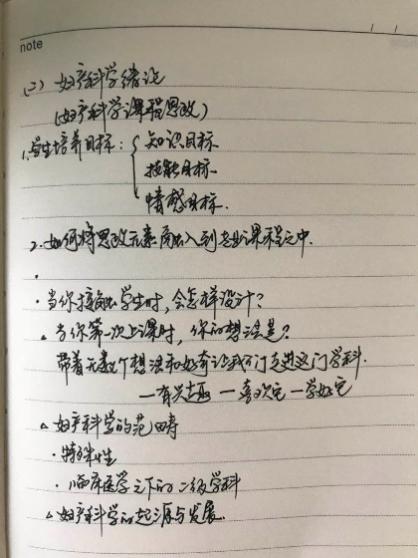 note
(二) 妇产科学绪论
(妇产科学课程思政)
1.学生培养目标:{知识目标
技能目标
情感目标.
2.如何将思政元素融入到专业课程之中.
·
·当你接触学生时,会怎样设计?
·当你第一次上课时,你的想法是?
带着无数个想法和好奇让我们走进这门学科.
一有兴趣 一喜欢它 一学好它
△妇产科学的范畴
·特殊性
·临床医学之下的二级学科
△妇产科学的起源与发展.